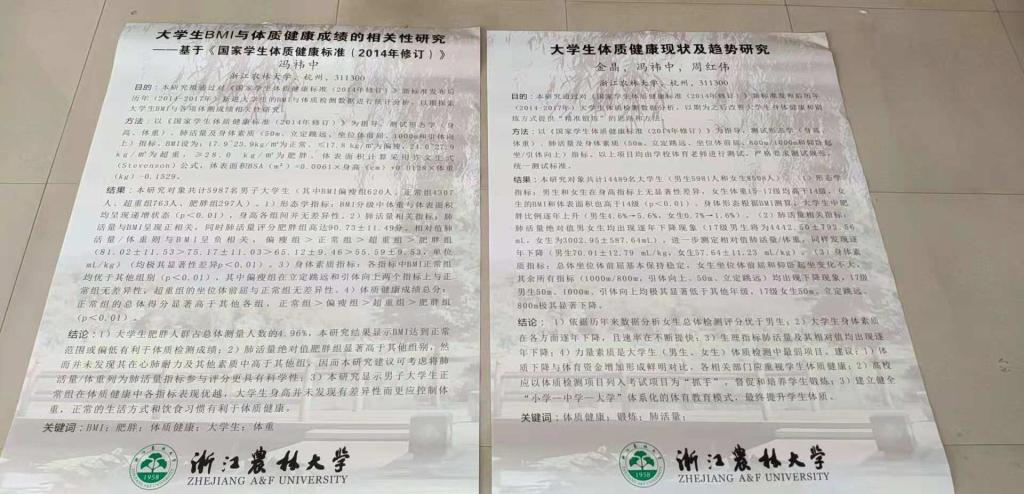 大学生BMI与体质健康成绩的相关性研究
——基于《国家学生体质健康标准（2014年修订）》
冯祎中
浙江农林大学，杭州，311300
目的：本研究拟通过对《国家学生体质健康标准（2014年修订）》新标准发布后
历年（2014-2017年）新进大学生的BMI与体质检测数据进行统计分析，以期探索
大学生BMI与各项体测成绩相关性研究。
方法：以《国家学生体质健康标准（2014年修订）》为指导，测试形态学（身
高、体重）、肺活量及身体素质（50m、立定跳远、坐位体前屈、1000m和引体向
上）指标。BMI设为：17.9~23.9kg/m²为正常、≤17.8 kg/m²为偏瘦、24.0~27.9
kg/m²为超重，≥28.0 kg/m²为肥胖。体表面积计算采用许文生式
（Stevenson）公式，体表面积BSA（m²）=0.0061×身高(cm)+0.0128×体重
(kg)-0.1529。
结果：本研究对象共计5987名男子大学生（其中BMI偏瘦组620人、正常组4307
人、超重组763人、肥胖组297人）。1）形态学指标：BMI分级中体重与体表面积
均呈现递增状态（p＜0.01），身高各组间并无差异性。2）肺活量相关指标：肺
活量与BMI呈现正相关，同时肺活量评分肥胖组高达90.73±11.49分。相对值肺
活量/体重则与BMI呈负相关，偏瘦组＞正常组＞超重组＞肥胖组
（81.02±11.53＞75.17±11.03＞65.12±9.46＞55.59±9.53，单位
mL/kg）（均极其显著性差异p＜0.01）。3）身体素质指标：各指标中BMI正常组
均优于其他组别（p＜0.01），其中偏瘦组在立定跳远和引体向上两个指标上与正
常组无差异性，超重组的坐位体前屈与正常组无差异性。4）体质健康成绩总分：
正常组的总体得分显著高于其他各组，正常组＞偏瘦组＞超重组＞肥胖组
（p＜0.01）。
结论：1）大学生肥胖人群占总体测量人数的4.96%，本研究结果显示BMI达到正常
范围或偏低有利于体质检测成绩；2）肺活量绝对值肥胖组显著高于其他组别，然
而并未发现其在心肺耐力及其他素质中高于其他组，因而本研究建议可考虑将肺
活量/体重列为肺活量指标参与评分更具有科学性；3）本研究显示男子大学生正
常组在体质健康中各指标表现优越，大学生身高并未发现有差异性而更应控制体
重，正常的生活方式和饮食习惯有利于体质健康。
关键词：BMI；肥胖；体质健康；大学生；体重
浙江农林大学
ZHEJIANG A&F UNIVERSITY
1958
大学生体质健康现状及趋势研究
金晶，冯祎中，周红伟
浙江农林大学，杭州，311300
目的：本研究拟通过对《国家学生体质健康标准（2014年修订）》新标准发布后历年
（2014-2017年）大学生体质检测数据分析，以期为之后改善大学生身体健康和锻
炼方式提供“精准锻炼”的思路和方法。
方法：以《国家学生体质健康标准（2014年修订）》为指导，测试形态学（身高、体
重）、肺活量及身体素质（50m、立定跳远、坐位体前屈、800m/1000m和仰卧起
坐/引体向上）指标。以上项目均由学校体育老师进行测试，严格要求测试规范，
统一测试标准。
结果：本研究对象共计14489名大学生（男生5981人和女生8508人）。（1）形态学
指标：男生和女生在身高指标上无显著性差异，女生体重15-17级均高于14级，女
生的BMI和体表面积也高于14级（p＜0.01）。身体形态根据BMI测算，大学生中肥
胖比例逐年上升（男生4.6%→5.6%，女生0.7%→1.6%）。（2）肺活量相关指标：
肺活量绝对值男女生均出现逐年下降现象（17级男生将为4442.50±792.56
mL，女生为3002.95±587.64mL），进一步测定相对值肺活量/体重，同样发现逐
年下降（男生70.01±12.79 mL/kg，女生57.64±11.23 mL/kg）。（3）身体素
质指标：总体坐位体前屈基本保持稳定，女生坐位体前屈和仰卧起坐变化不大，
其余所有指标（1000m/800m、引体向上、50m、立定跳远）均出现下降现象，17级
男生50m、1000m、引体向上均极其显著低于其他年级，17级女生50m、立定跳远、
800m极其显著下降。
结论：1）依据历年来数据分析女生总体检测评分优于男生；2）大学生身体素质
在各方面逐年下降，且速率在不断提快；3）生理指标肺活量及其相对值均出现逐
年下降；4）力量素质是大学生（男生、女生）体质检测中最弱项目。建议：1）体
质下降与体育资金增加形成鲜明对比，各相关部门应重视学生体质健康；2）高校
应以体质检测项目列入考试项目为“抓手”，督促和培养学生锻炼；3）建立健全
“小学—中学—大学”体系化的体育教育模式，最终提升学生体质。
关键词：体质健康；锻炼；肺活量；
浙江农林大学
ZHEJIANG A&F UNIVERSITY
1958